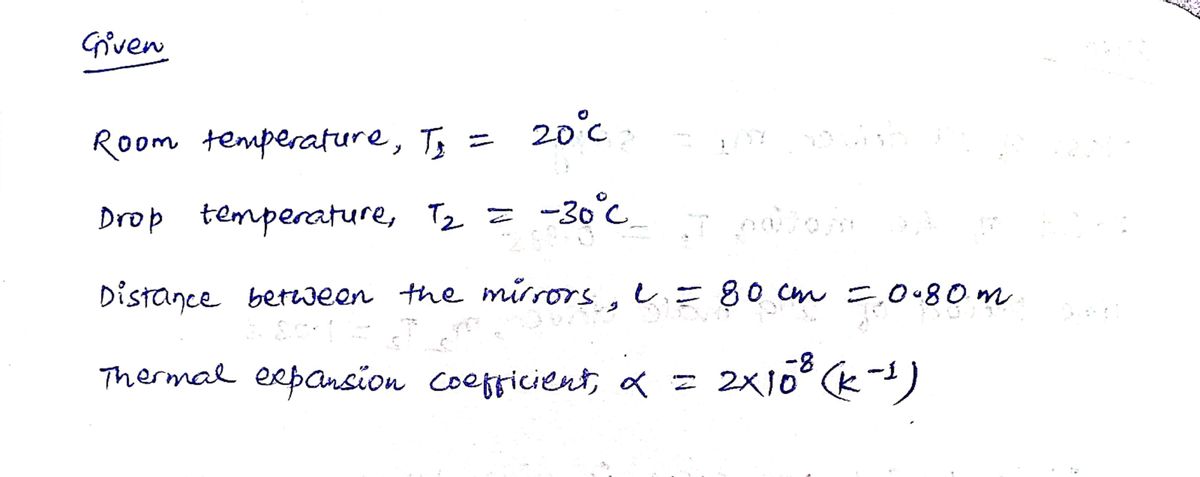 Given
Room temperature, T₁ = 20°C
Drop temperature, T₂ = -30°C
Distance between the mirrors, L = 80 cm = 0.80 m
Thermal expansion coefficient, α = 2×10⁻⁸ (K⁻¹)